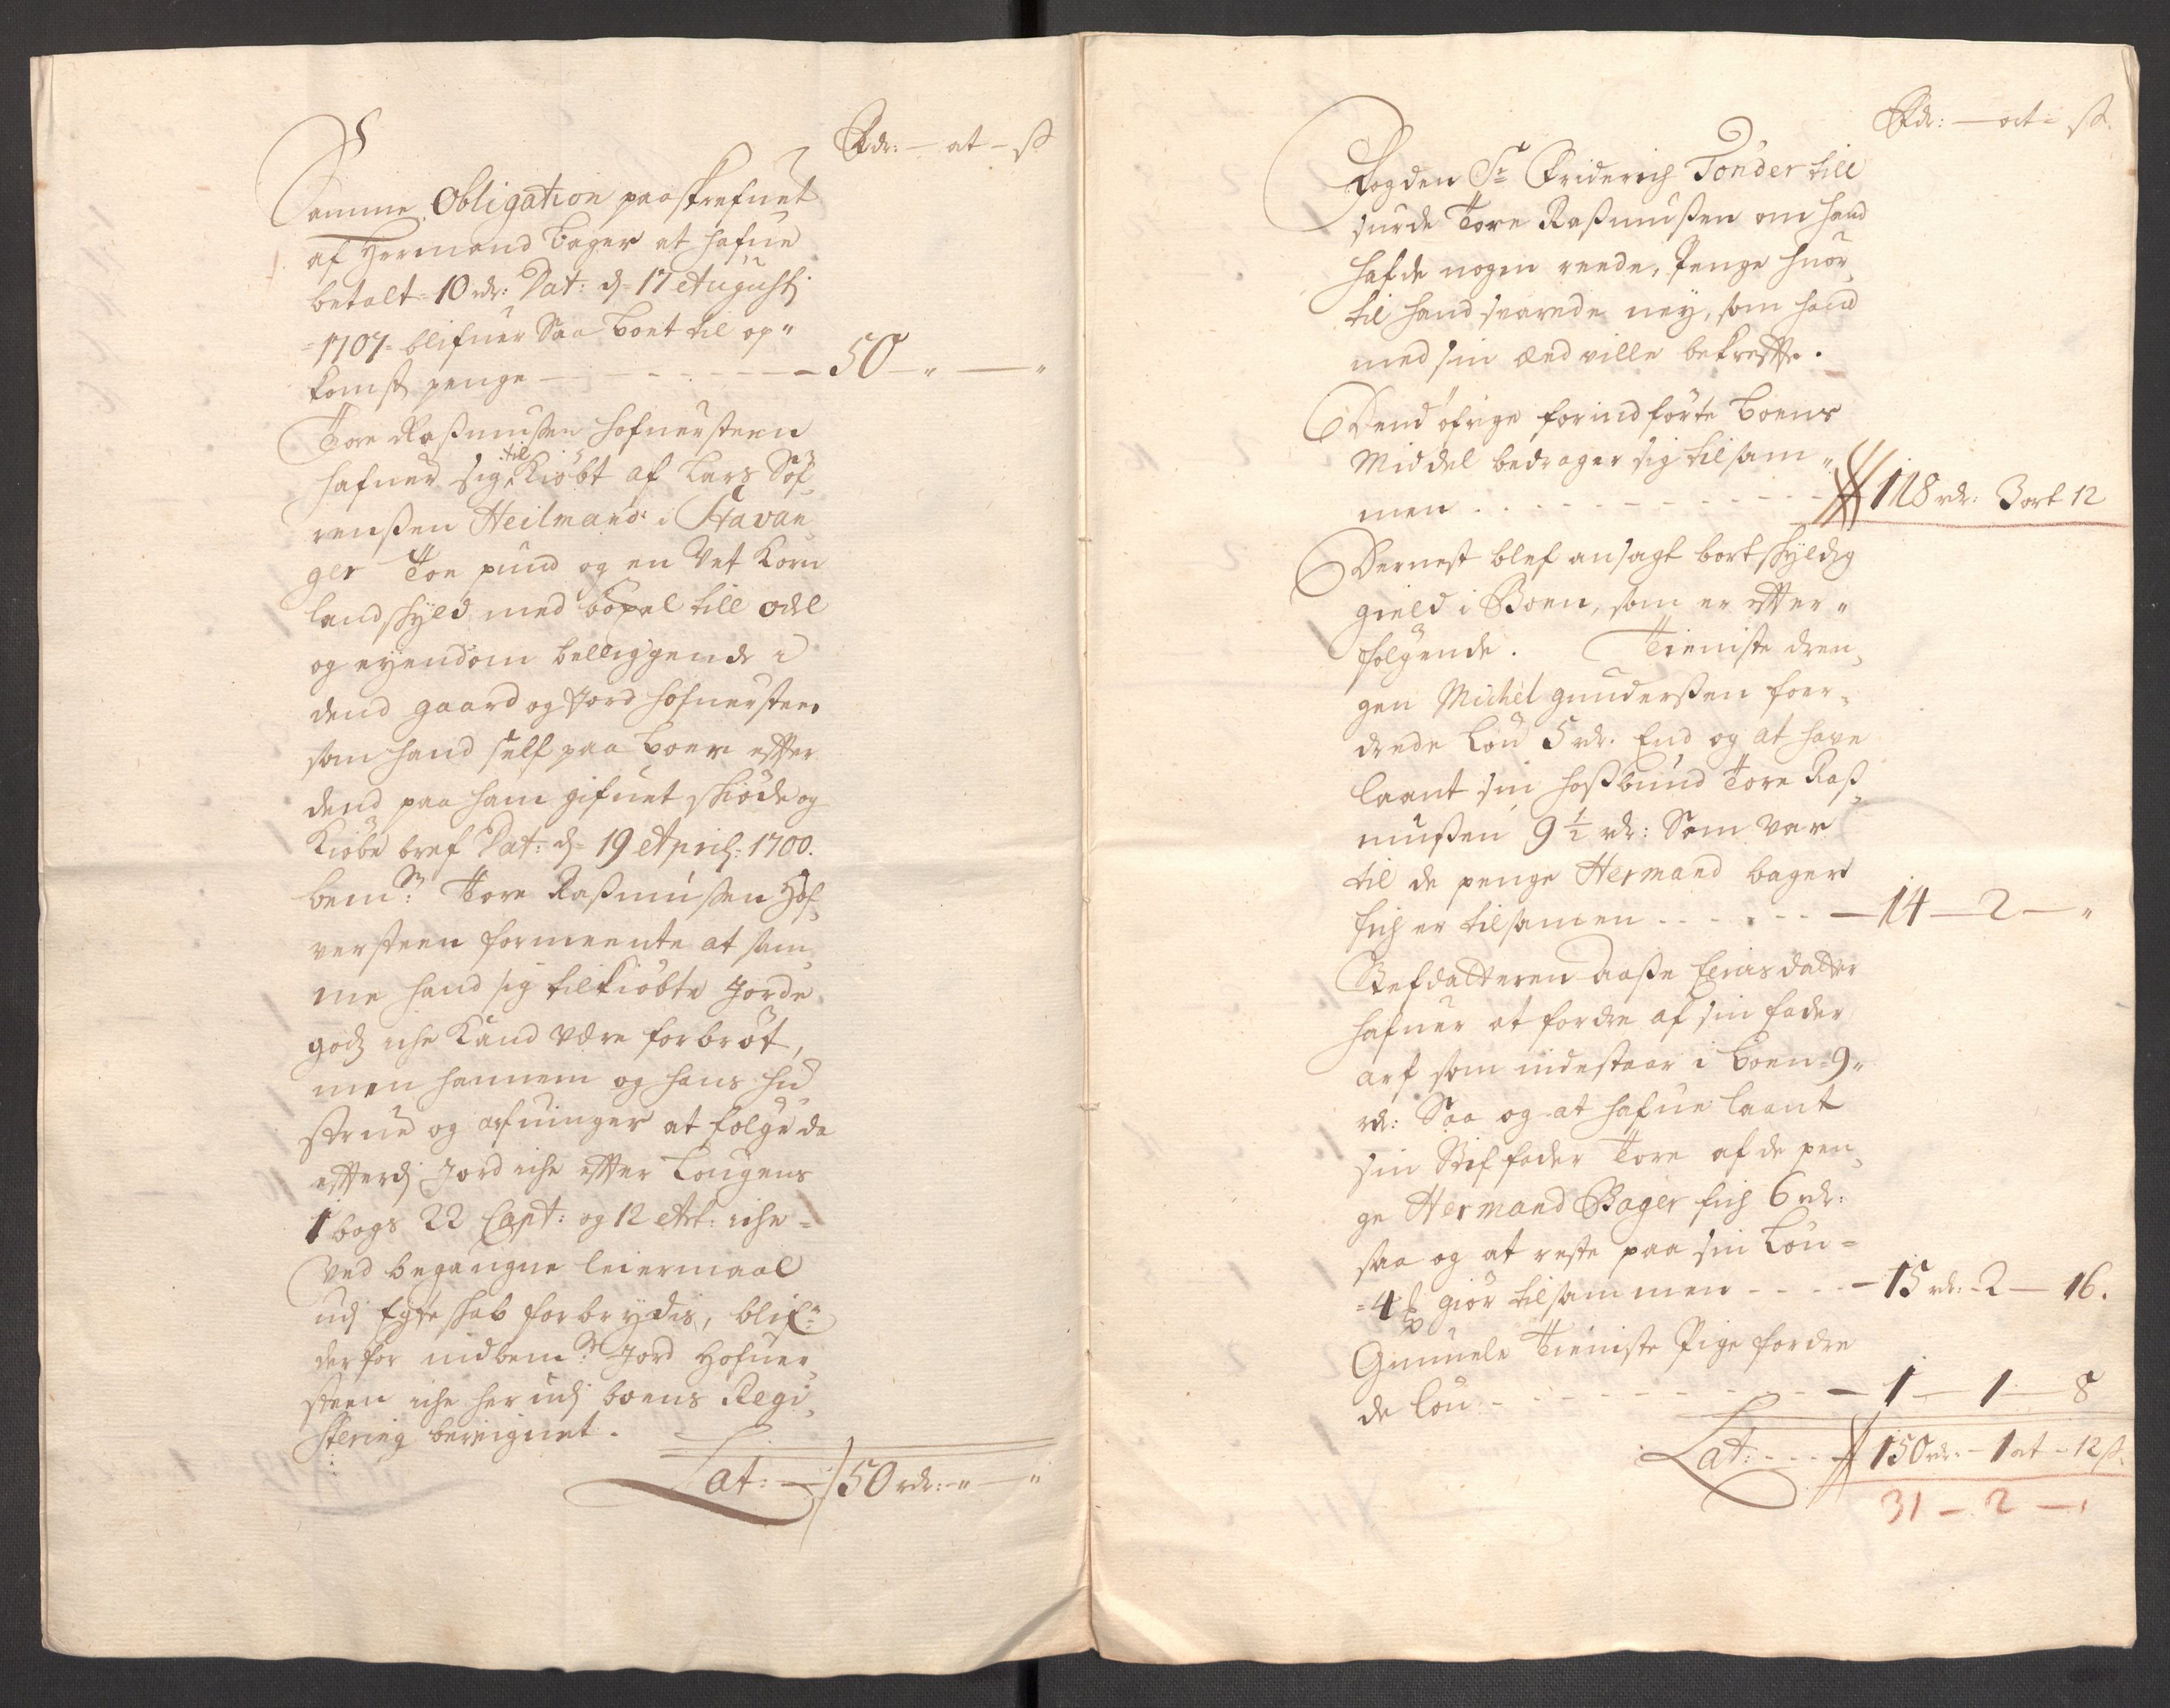 Rdr: — ort — ß
Samme Obligation paaskrefuet
af Hermand bager at hafue
betalt 10 rdr: Dat: d= 17 Augustj
=1707= blifuer Saa boet til op=
komst penge — 50 — " — "
Tore Raßmußen Hofuersteen
hafuer sig til Kiøbt af Lars Søf=
renßen Heilmand i Stavan=
ger Toe pund og en Vet Korn
landskyld med bøxel till odel
og eyendom beliggende i
dend gaard og Jord Hofuersteen
som hand self paa boer efter
dend paa ham gifuet skiøde og
Kiøbe bref Dat: d= 19 April: 1700.
bemte: Tore Raßmußen Hof=
versteen formeente at sam=
me hand sig tilkiøbte Jorde
godz iche Kand være forbrøt,
men hannem og hans hu=
strue og arfuinger at følge da
efterdj Jord iche efter Lougens
1 bogs 22 Capt: og 12 Art: iche =
Ved begangne leiermaal
udj Egteskab forbrydis, blifr:
derfor indbemte: Jord Hofuer=
steen iche her udj boens Regi=
stering bereignet.
Lat: — 50 rdr: - " — "
Rdr: — ort - ß.
Fogden Sr Friderich Tønder till
spurde Tore Raßmußen om hand
hafde nogen reede Penge huor=
til hand svarede ney, som hand
med sin æd ville bekrefte.
Dend øfrige forindførte boens
Middel bedrager sig tilsam=
men . . . . 118 rdr: 3 ort 12
Dernest blef ansagt bortskyldig
gield i Boen, som er efter=
følgende. Tieniste dren=
gen Michel gunderßen foer=
drede Løn 5 rdr. End og at have
laant sin Hoßbund Tore Raß=
mußen 9 1/2 rdr: Som var
til de penge Hermand bager
fich er tilsamen - - - - 14 — 2 — "
Stefdatteren Aaße Eriisdatter
hafuer at fordre af sin fader
arf som indestaar i boen 9"
rdr: Saa og at hafue laant
sin Stiffader Tore af de pen=
ge Hermand Bager fich 6 rdr:
saa og at reste paa sin Løn =
=4 ß giør tilsammen - - - 15 rdr: - 2 — 16.
Gunnele Tieniste Pige fordre
de løn - - - - 1 — 1 — 8
Lat: - - - 150 rdr: - 1 ort - 12 ß.
31 — 2 — "